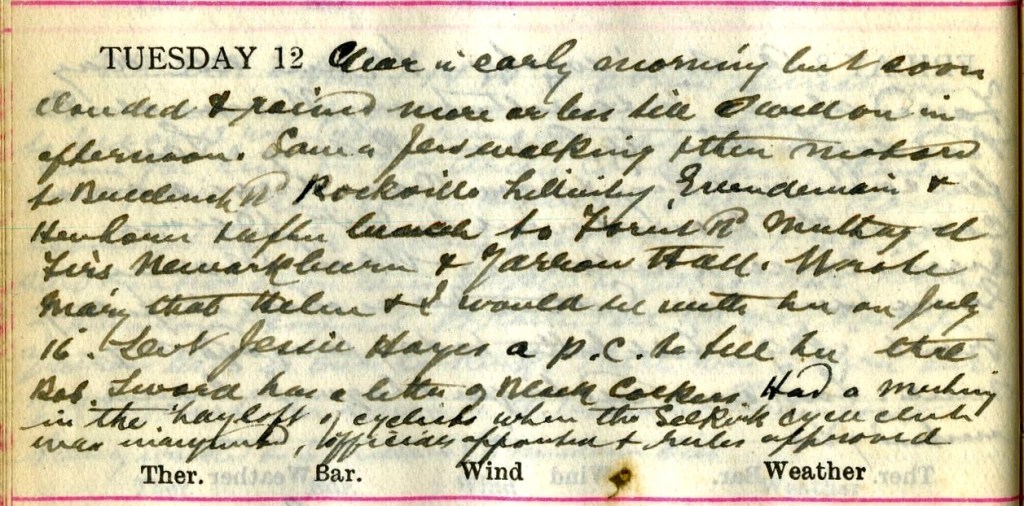 TUESDAY 12 Clear in early morning but soon
clouded & rained more or less till well on in
afternoon. Saw a few walking & then motored
to Buccleuch Rd Rockville &
& after to Forest Rd
Firs Newarkburn & Yarrow Hall. Wrote
Mary that Helen & I would be with her on July
16. Sent Jessie Hayes a p.c. to tell her that
Bob Sword has a litter of Black Cockers. Had a meeting
in the hayloft of cyclists when the Selkirk cycle club
was inaugurated, officials appointed & rules approved
Ther. Bar. Wind Weather